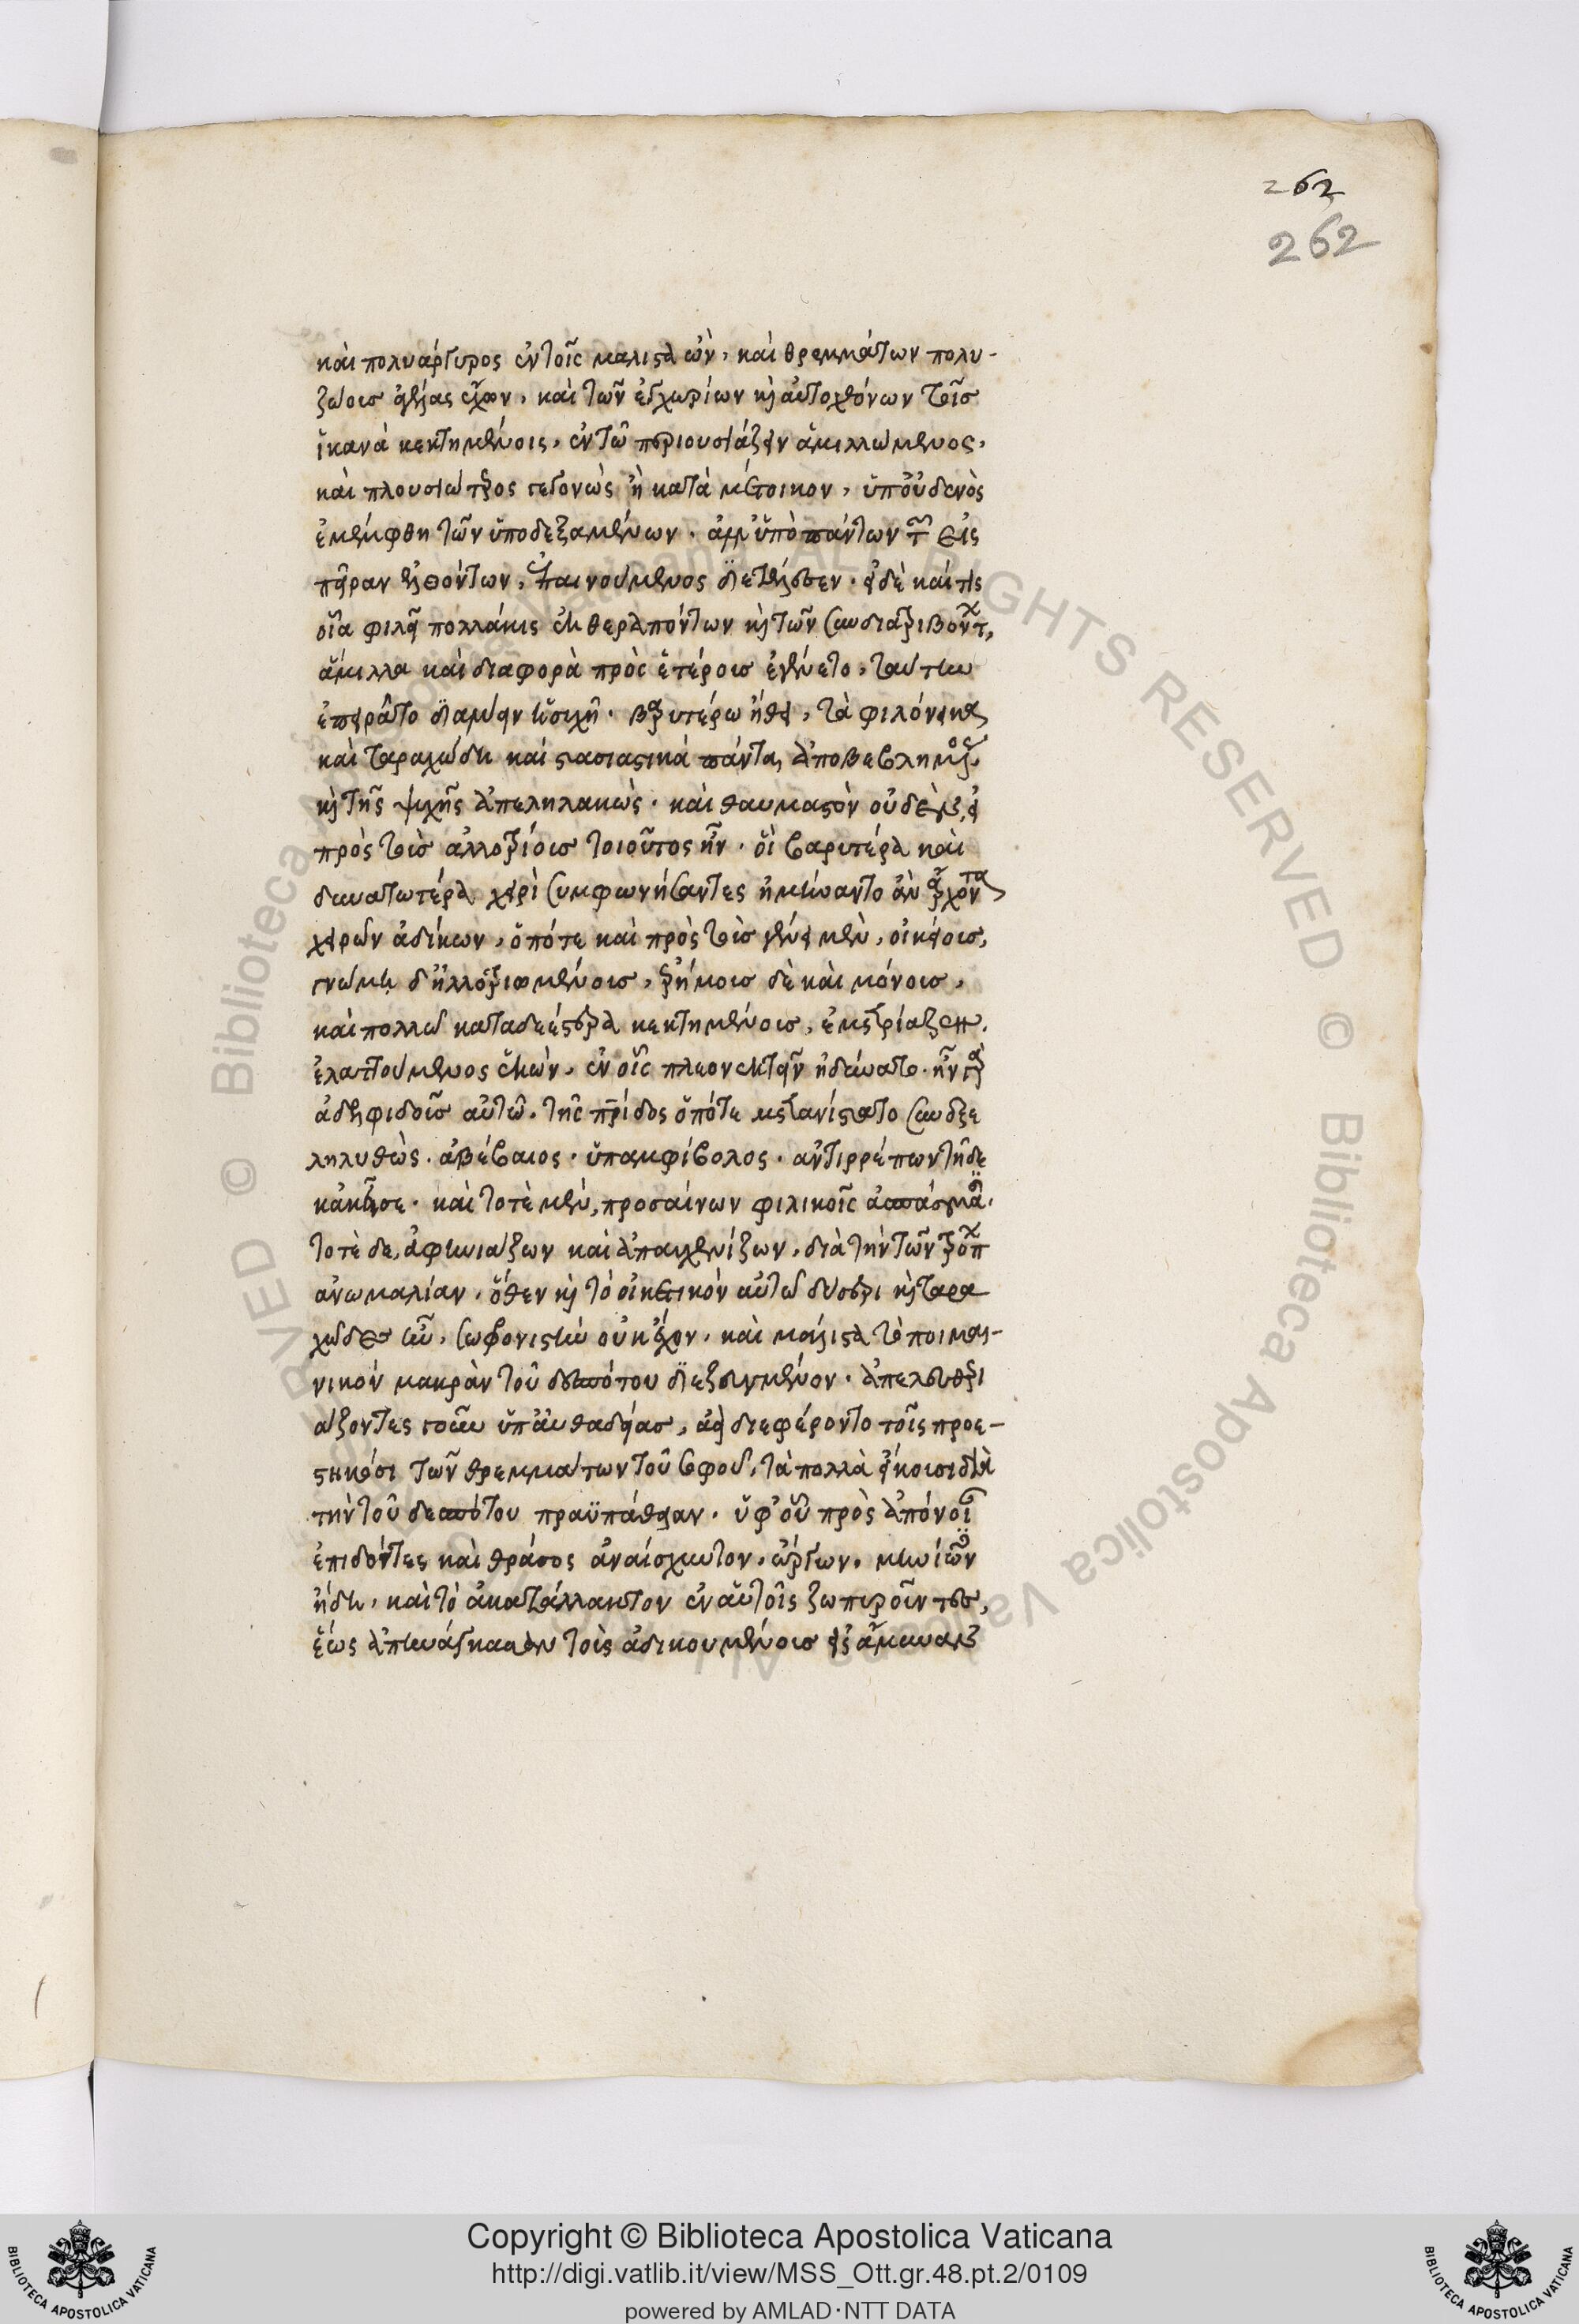 262
262
καὶ πολυάργυρος ἐν τοῖς μάλιστα ὢν, καὶ θρεμμάτων πολυ-
ζώοις ἀγέλας ἔχων, καὶ τῶν ἐγχωρίων καὶ αὐτοχθόνων τοῖς
ἱκανὰ κεκτημένοις, ἐν τῷ περιουσιάζειν ἁμιλλώμενος,
καὶ πλουσιώτερος γεγονὼς ἢ κατὰ μέτοικον, ὑπ' οὐδενὸς
ἐμέμφθη τῶν ὑποδεξαμένων. ἀλλ' ὑπὸ πάντων τῶν εἰς
πεῖραν ἐλθόντων, ἐπαινούμενος διετέλεσεν. εἰ δὲ καί τις
οἷα φιλεῖ πολλάκις ἐκ θεραπόντων καὶ τῶν συνδιατριβόντων,
ἅμιλλα καὶ διαφορὰ πρὸς ἑτέροις ἐγένετο, ταύτην
ἐπειρᾶτο διαλύειν ἡσυχῇ. βαρυτέρῳ ἤθει, τὰ φιλόνεικα
καὶ ταραχώδη καὶ στασιαστικὰ πάντα, ἀποβεβλημένος
καὶ τῆς ψυχῆς ἀπεληλακὼς. καὶ θαυμαστὸν οὐδὲν, εἰ
πρὸς τοὺς ἀλλοτρίοις τοιοῦτος ἦν. οἳ βαρυτέρα καὶ
δυνατωτέρα χειρὶ συμφωνήσαντες ἠμύναντο ἂν ἄρχοντα
χειρῶν ἀδίκων, ὁπότε καὶ πρὸς τοὺς γένει μὲν, οἰκείοις,
γνώμῃ δ' ἠλλοτριωμένοις, ἐρήμοις δὲ καὶ μόνοις,
καὶ πολλῷ καταδεέστερα κεκτημένοις, ἐμετρίαζεν,
ἐλαττούμενος ἑκὼν, ἐν οἷς πλεονεκτεῖν ἠδύνατο. ἦν γὰρ
ἀδελφιδοῦς αὐτῷ, τῆς πρίδος ὁπότε μετανίστατο συνεξε
ληλυθὼς. ἀβέβαιος. ὑπαμφίβολος. ἀντιρρέπων τῇδε
κἀκεῖσε. καὶ τοτὲ μὲν, προσαίνων φιλικοῖς ἀσπάσμασι.
τοτὲ δε, ἀφηνιάζων καὶ ἀπαυχενίζων, διὰ τὴν τῶν τρόπων
ἀνωμαλίαν. ὅθεν καὶ τὸ οἰκετικὸν αὐτῷ δύσερι καὶ ταρα
χῶδες ἦν, σωφρονιστὴν οὐκ ἔχον, καὶ μάλιστα τὸ ποιμε-
νικὸν μακρὰν τοῦ δεσπότου διεζευγμένον. ἀπελευθερι
άζοντες γοῦν ὑπ' αὐθαδείας, ἀεὶ διεφέροντο τοῖς προε-
στηκόσι τῶν θρεμμάτων τοῦ σοφοῦ, τὰ πολλὰ εἴκουσι διὰ
τὴν τοῦ δεσπότου πραϋπάθειαν. ὑφ' οὗ πρὸς ἀπόνοιαν
ἐπιδόντες καὶ θράσος ἀναίσχυντον, ὤργων, μηνιῶντες
ἤδη, καὶ τὸ ἀκατάλλακτον ἐν αὐτοῖς ζωπυροῦντες,
ἕως ἀπηνάγκασαν τοὺς ἀδικουμένοις εἰς ἄμυναν
Copyright © Biblioteca Apostolica Vaticana
http://digi.vatlib.it/view/MSS_Ott.gr.48.pt.2/0109
powered by AMLAD·NTT DATA